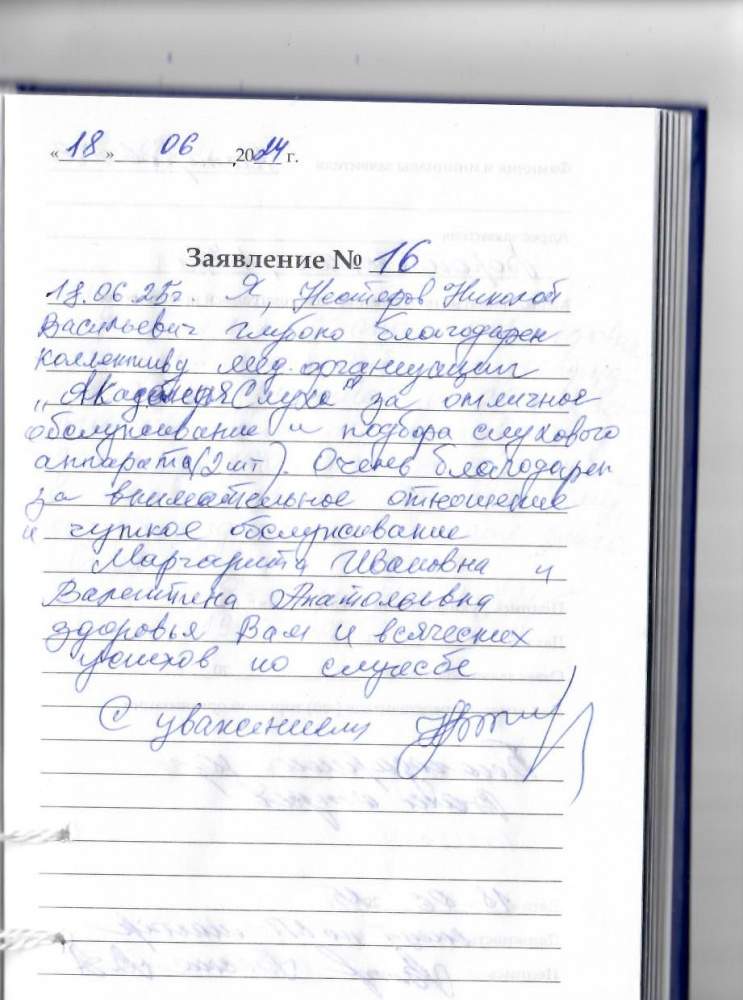 «18» 06 2024 г.
Заявление № 16
18.06.25г. Я, Нестеров Николай
Васильевич глубоко благодарен
коллективу мед. организации
„Академия Слуха" за отличное
обслуживание и подбора слухового
аппарата (2 шт). Очень благодарен
за внимательное отношение
и чуткое обслуживание
Маргарита Ивановна и
Валентина Анатольевна
здоровья Вам и всяческих
успехов по службе
С уважением